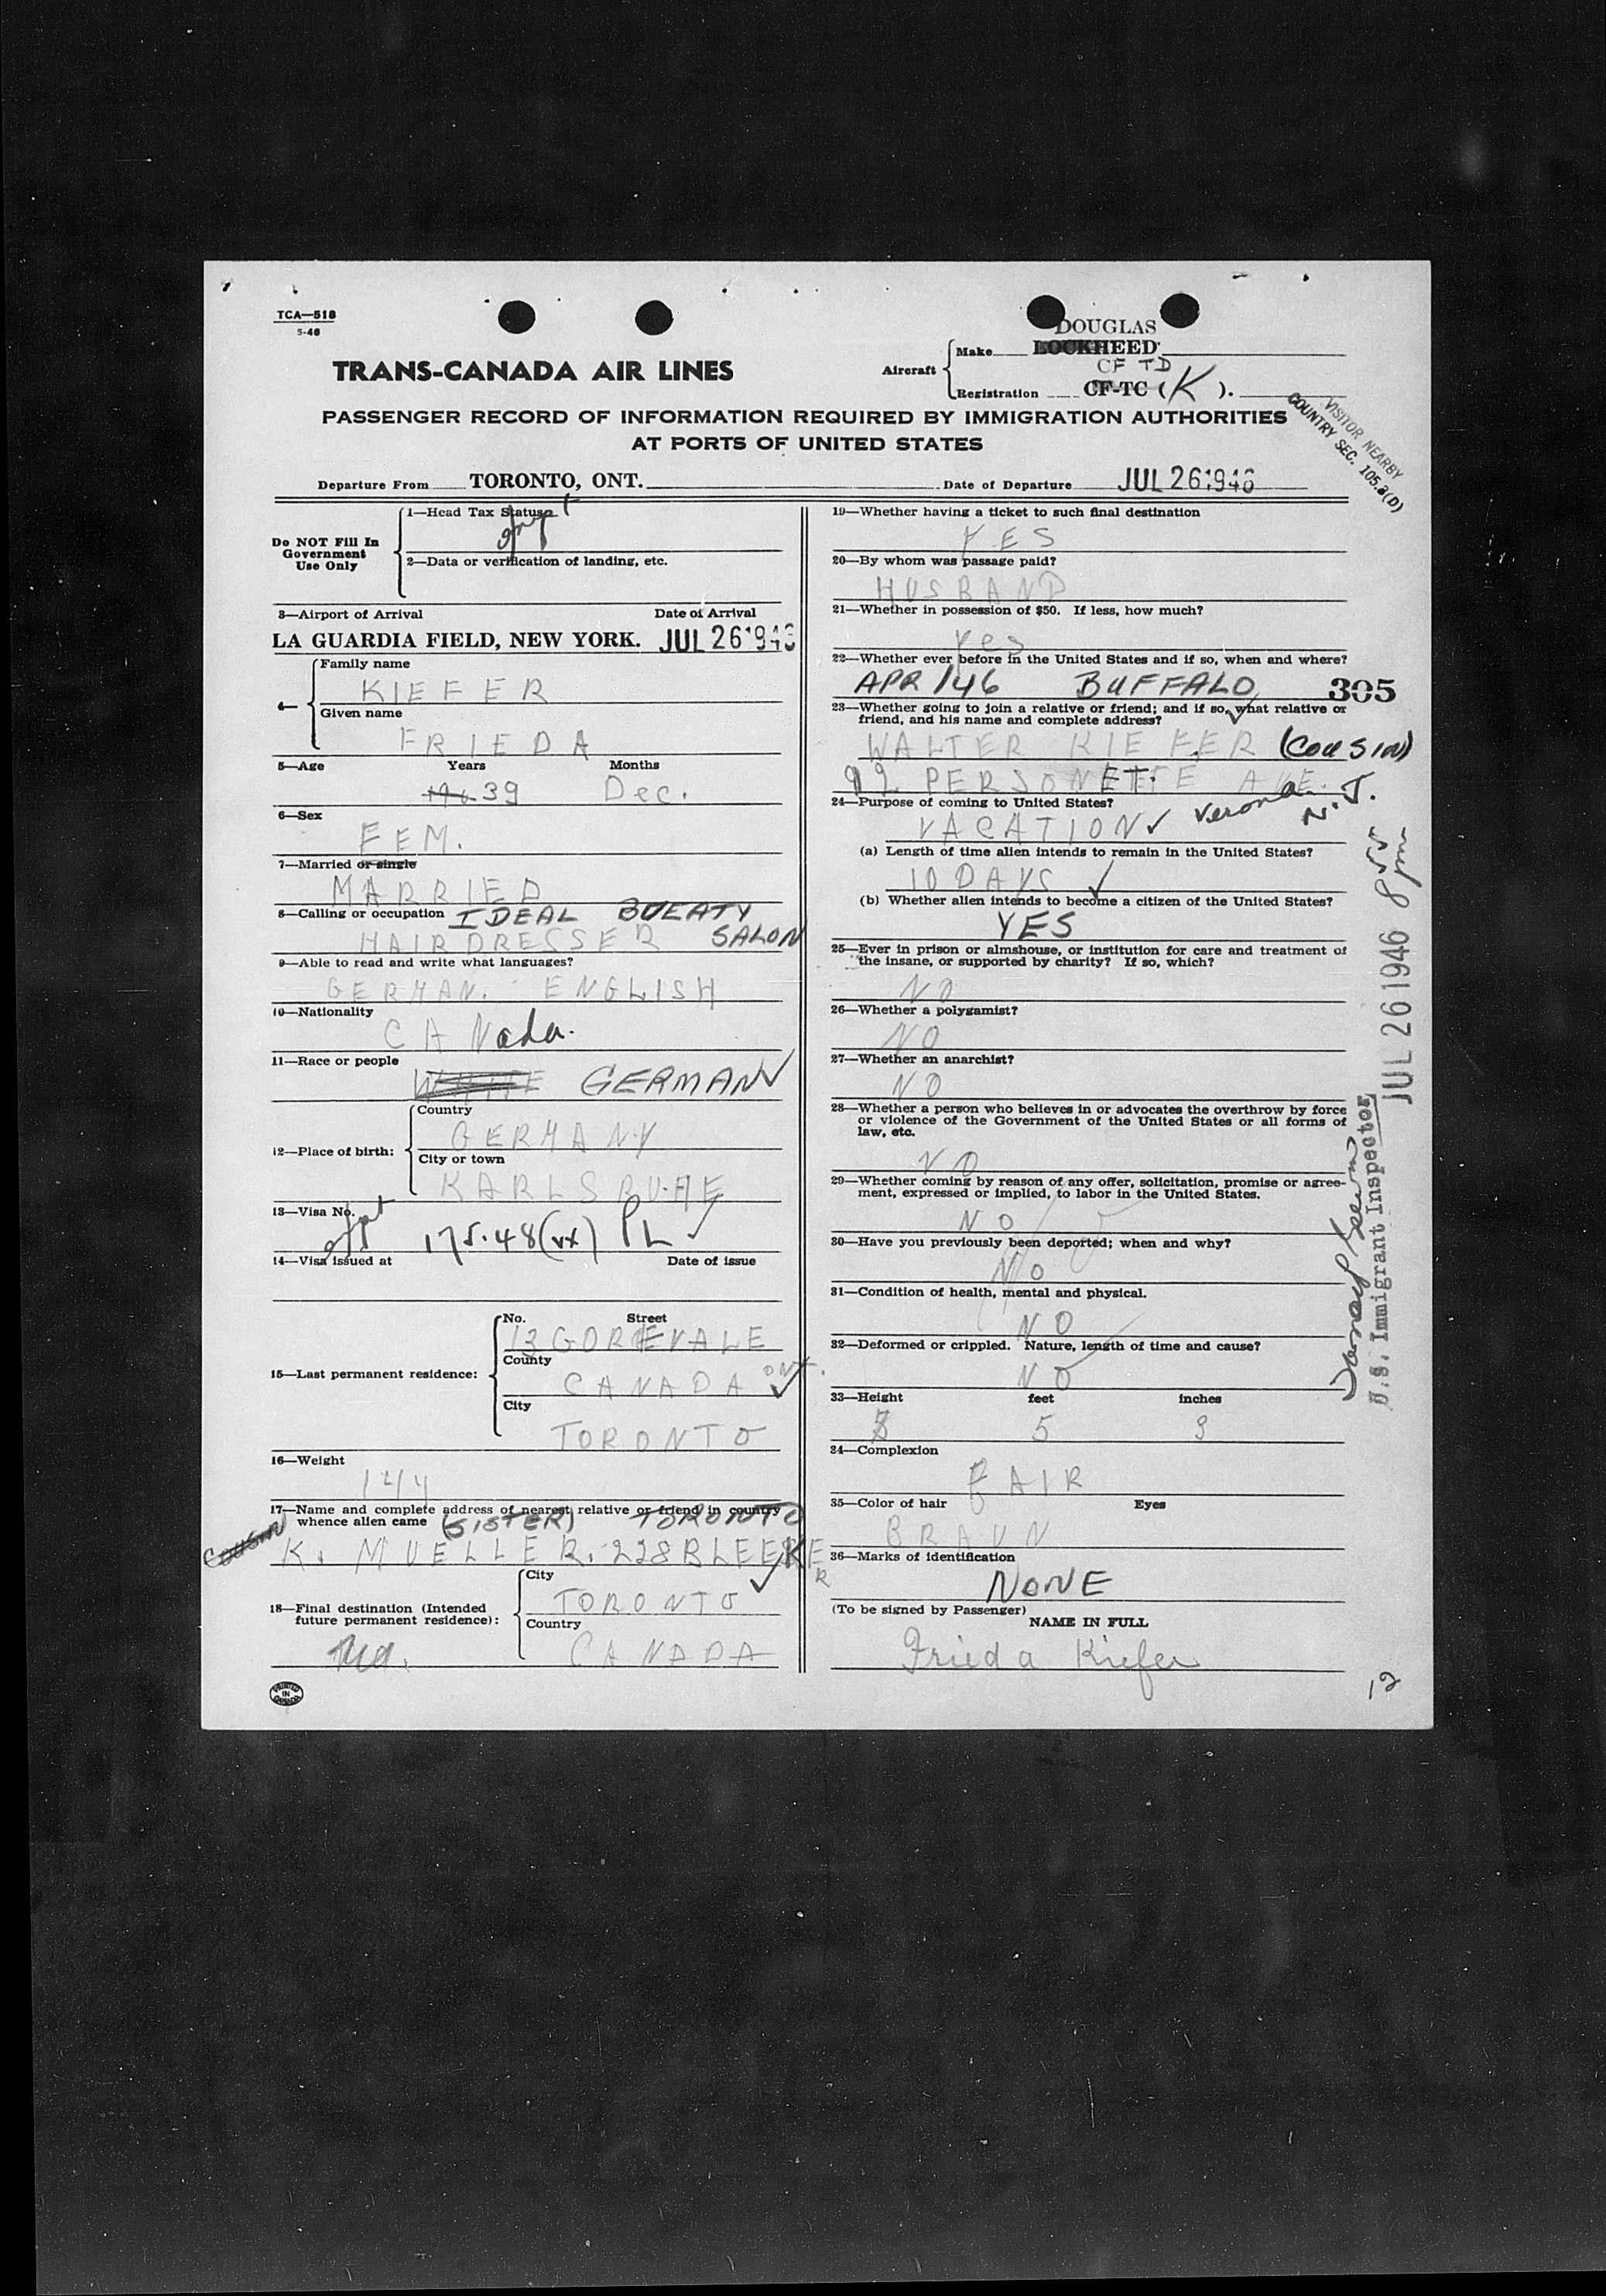 TCA—518
5-46
DOUGLAS
Aircraft
Make LOCKHEED
CF TD
Registration CF-TC (K).
TRANS-CANADA AIR LINES
PASSENGER RECORD OF INFORMATION REQUIRED BY IMMIGRATION AUTHORITIES
AT PORTS OF UNITED STATES
VISITOR NEARBY
COUNTRY SEC. 105.3(D)
Departure From TORONTO, ONT. Date of Departure JUL 26 1946
Do NOT Fill In
Government
Use Only
1—Head Tax Status
2—Data or verification of landing, etc.
3—Airport of Arrival Date of Arrival
LA GUARDIA FIELD, NEW YORK. JUL 26 1946
4—
Family name
KIEFER
Given name
FRIEDA
5—Age Years Months
39 Dec.
6—Sex
FEM.
7—Married or single
MARRIED
8—Calling or occupation IDEAL BUEATY
HAIRDRESSER SALON
9—Able to read and write what languages?
GERMAN. ENGLISH
10—Nationality
CANada.
11—Race or people
WHITE GERMAN
12—Place of birth:
Country
GERMANY
City or town
KARLSRUHE
13—Visa No.
175.48(vx) PL
14—Visa issued at Date of issue
15—Last permanent residence:
No. Street
13 GOREVALE
County
CANADA ONT.
City
TORONTO
16—Weight
144
17—Name and complete address of nearest relative or friend in country
whence alien came (SISTER) TORONTO
COUSIN K. MUELLER. 228 BLEEKER
18—Final destination (Intended
future permanent residence):
City
TORONTO
Country
CANADA
PRINTED
IN
CANADA
19—Whether having a ticket to such final destination
YES
20—By whom was passage paid?
HUSBAND
21—Whether in possession of $50. If less, how much?
Yes
22—Whether ever before in the United States and if so, when and where?
APR/46 BUFFALO 305
23—Whether going to join a relative or friend; and if so, what relative or
friend, and his name and complete address?
WALTER KIEFER (COUSIN)
92 PERSONETTE AVE.
24—Purpose of coming to United States? Verona N.J.
VACATION
(a) Length of time alien intends to remain in the United States?
10 DAYS
(b) Whether alien intends to become a citizen of the United States?
YES
25—Ever in prison or almshouse, or institution for care and treatment of
the insane, or supported by charity? If so, which?
NO
26—Whether a polygamist?
NO
27—Whether an anarchist?
NO
28—Whether a person who believes in or advocates the overthrow by force
or violence of the Government of the United States or all forms of
law, etc.
NO
29—Whether coming by reason of any offer, solicitation, promise or agree-
ment, expressed or implied, to labor in the United States.
NO
30—Have you previously been deported; when and why?
No
31—Condition of health, mental and physical.
NO
32—Deformed or crippled. Nature, length of time and cause?
NO
33—Height feet inches
5 3
34—Complexion
FAIR
35—Color of hair Eyes
BRAUN
36—Marks of identification
NONE
(To be signed by Passenger)
NAME IN FULL
Frieda Kiefer
12
JUL 26 1946 8 pm
U.S. Immigrant Inspector